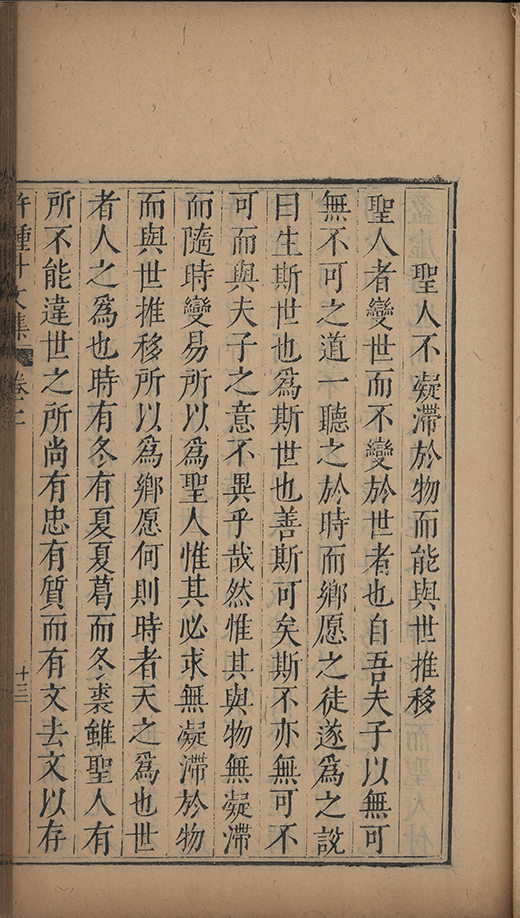 聖人不凝滯於物而能與世推移
聖人者變世而不變於世者也自吾夫子以無可
無不可之道一聽之於時而鄉愿之徒遂為之說
曰生斯世也為斯世也善斯可矣斯不亦無可不
可而與夫子之意不異乎哉然惟其與物無凝滯
而隨時變易所以為聖人惟其必求無凝滯於物
而與世推移所以為鄉愿何則時者天之為也世
者人之為也時有冬有夏夏葛而冬裘雖聖人有
所不能違世之所尚有忠有質而有文去文以存
許鍾斗文集 卷之二 十三